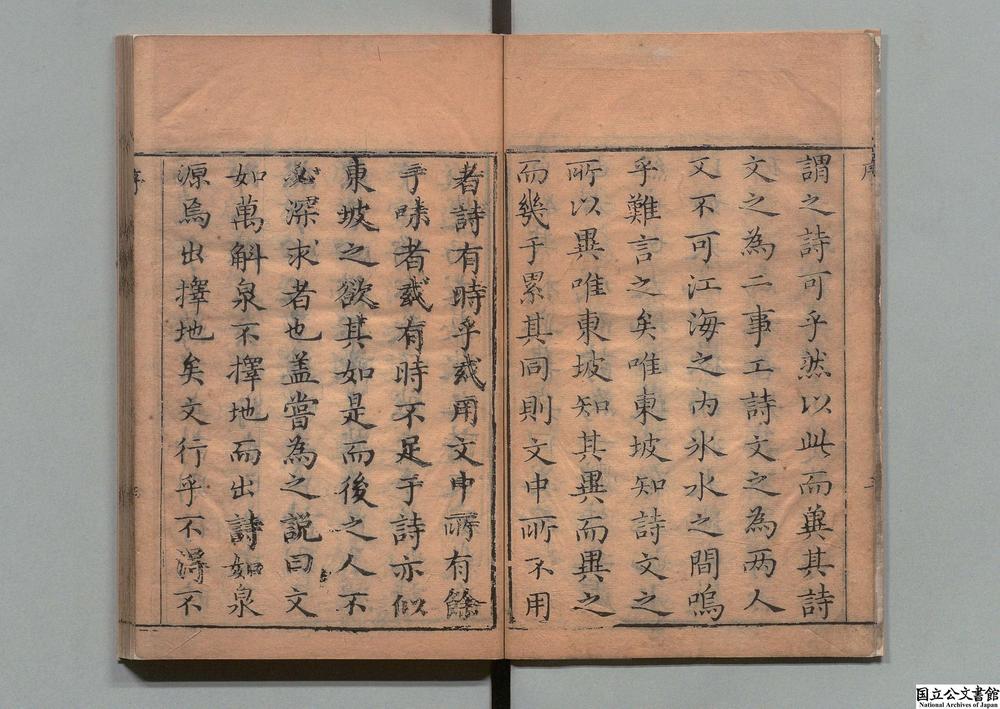 謂之詩可乎然以此而兾其詩
文之為二事工詩文之為两人
又不可江海之内氷水之間嗚
乎難言之矣唯東坡知詩文之
所以異唯東坡知其異而異之
而幾于累其同則文中所不用
者詩有時乎或用文中所有餘
乎味者或有時不足于詩亦似
東坡之欲其如是而後之人不
必深求者也盖嘗為之說曰文
如萬斛泉不擇地而出詩如泉
源焉出擇地矣文行乎不得不
序
国立公文書館
National Archives of Japan